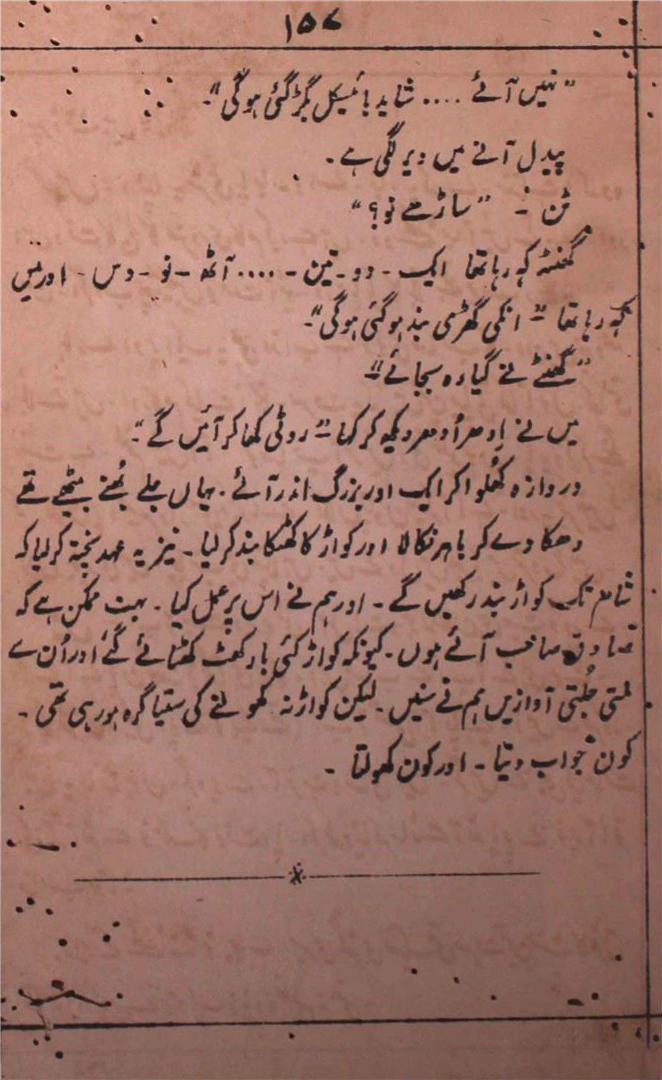 ۱۵۷
"نہیں آئے .... شاید بائیسکل بگڑ گئی ہوگی"۔
پیدل آنے میں دیر لگی ہے ۔
ٹن ۔ "ساڑھے نو؟"
گھنٹہ کہہ رہا تھا ایک ۔ دو ۔ تین ۔ .... آٹھ ۔ نو ۔ دس ۔ اور میں
کہہ رہا تھا "انکی گھڑی بند ہو گئی ہوگی"۔
"گھنٹے نے گیارہ بجائے"
میں نے اِدھر اُدھر دیکھ کر کہا "روٹی کھا کر آئیں گے"۔
دروازہ کھُلوا کر ایک اور بزرگ اندر آئے ۔ یہاں جلے بھُنے بیٹھے تھے
دھکا دے کر باہر نکالا اور کواڑ کا کھٹکا بند کر لیا ۔ نیز یہ عہد پختہ کر لیا کہ
شام تک کواڑ بند رکھیں گے ۔ اور ہم نے اس پر عمل کیا ۔ بہت ممکن ہے کہ
صادق صاحب آئے ہوں ۔ کیونکہ کواڑ کئی بار کھٹ کھٹائے گئے اور اُن سے
ملتی جُلتی آوازیں ہم نے سنیں ۔ لیکن کواڑ نہ کھولنے کی ستیاگرہ ہو رہی تھی ۔
کون جواب دیتا ۔ اور کون کھولتا ۔